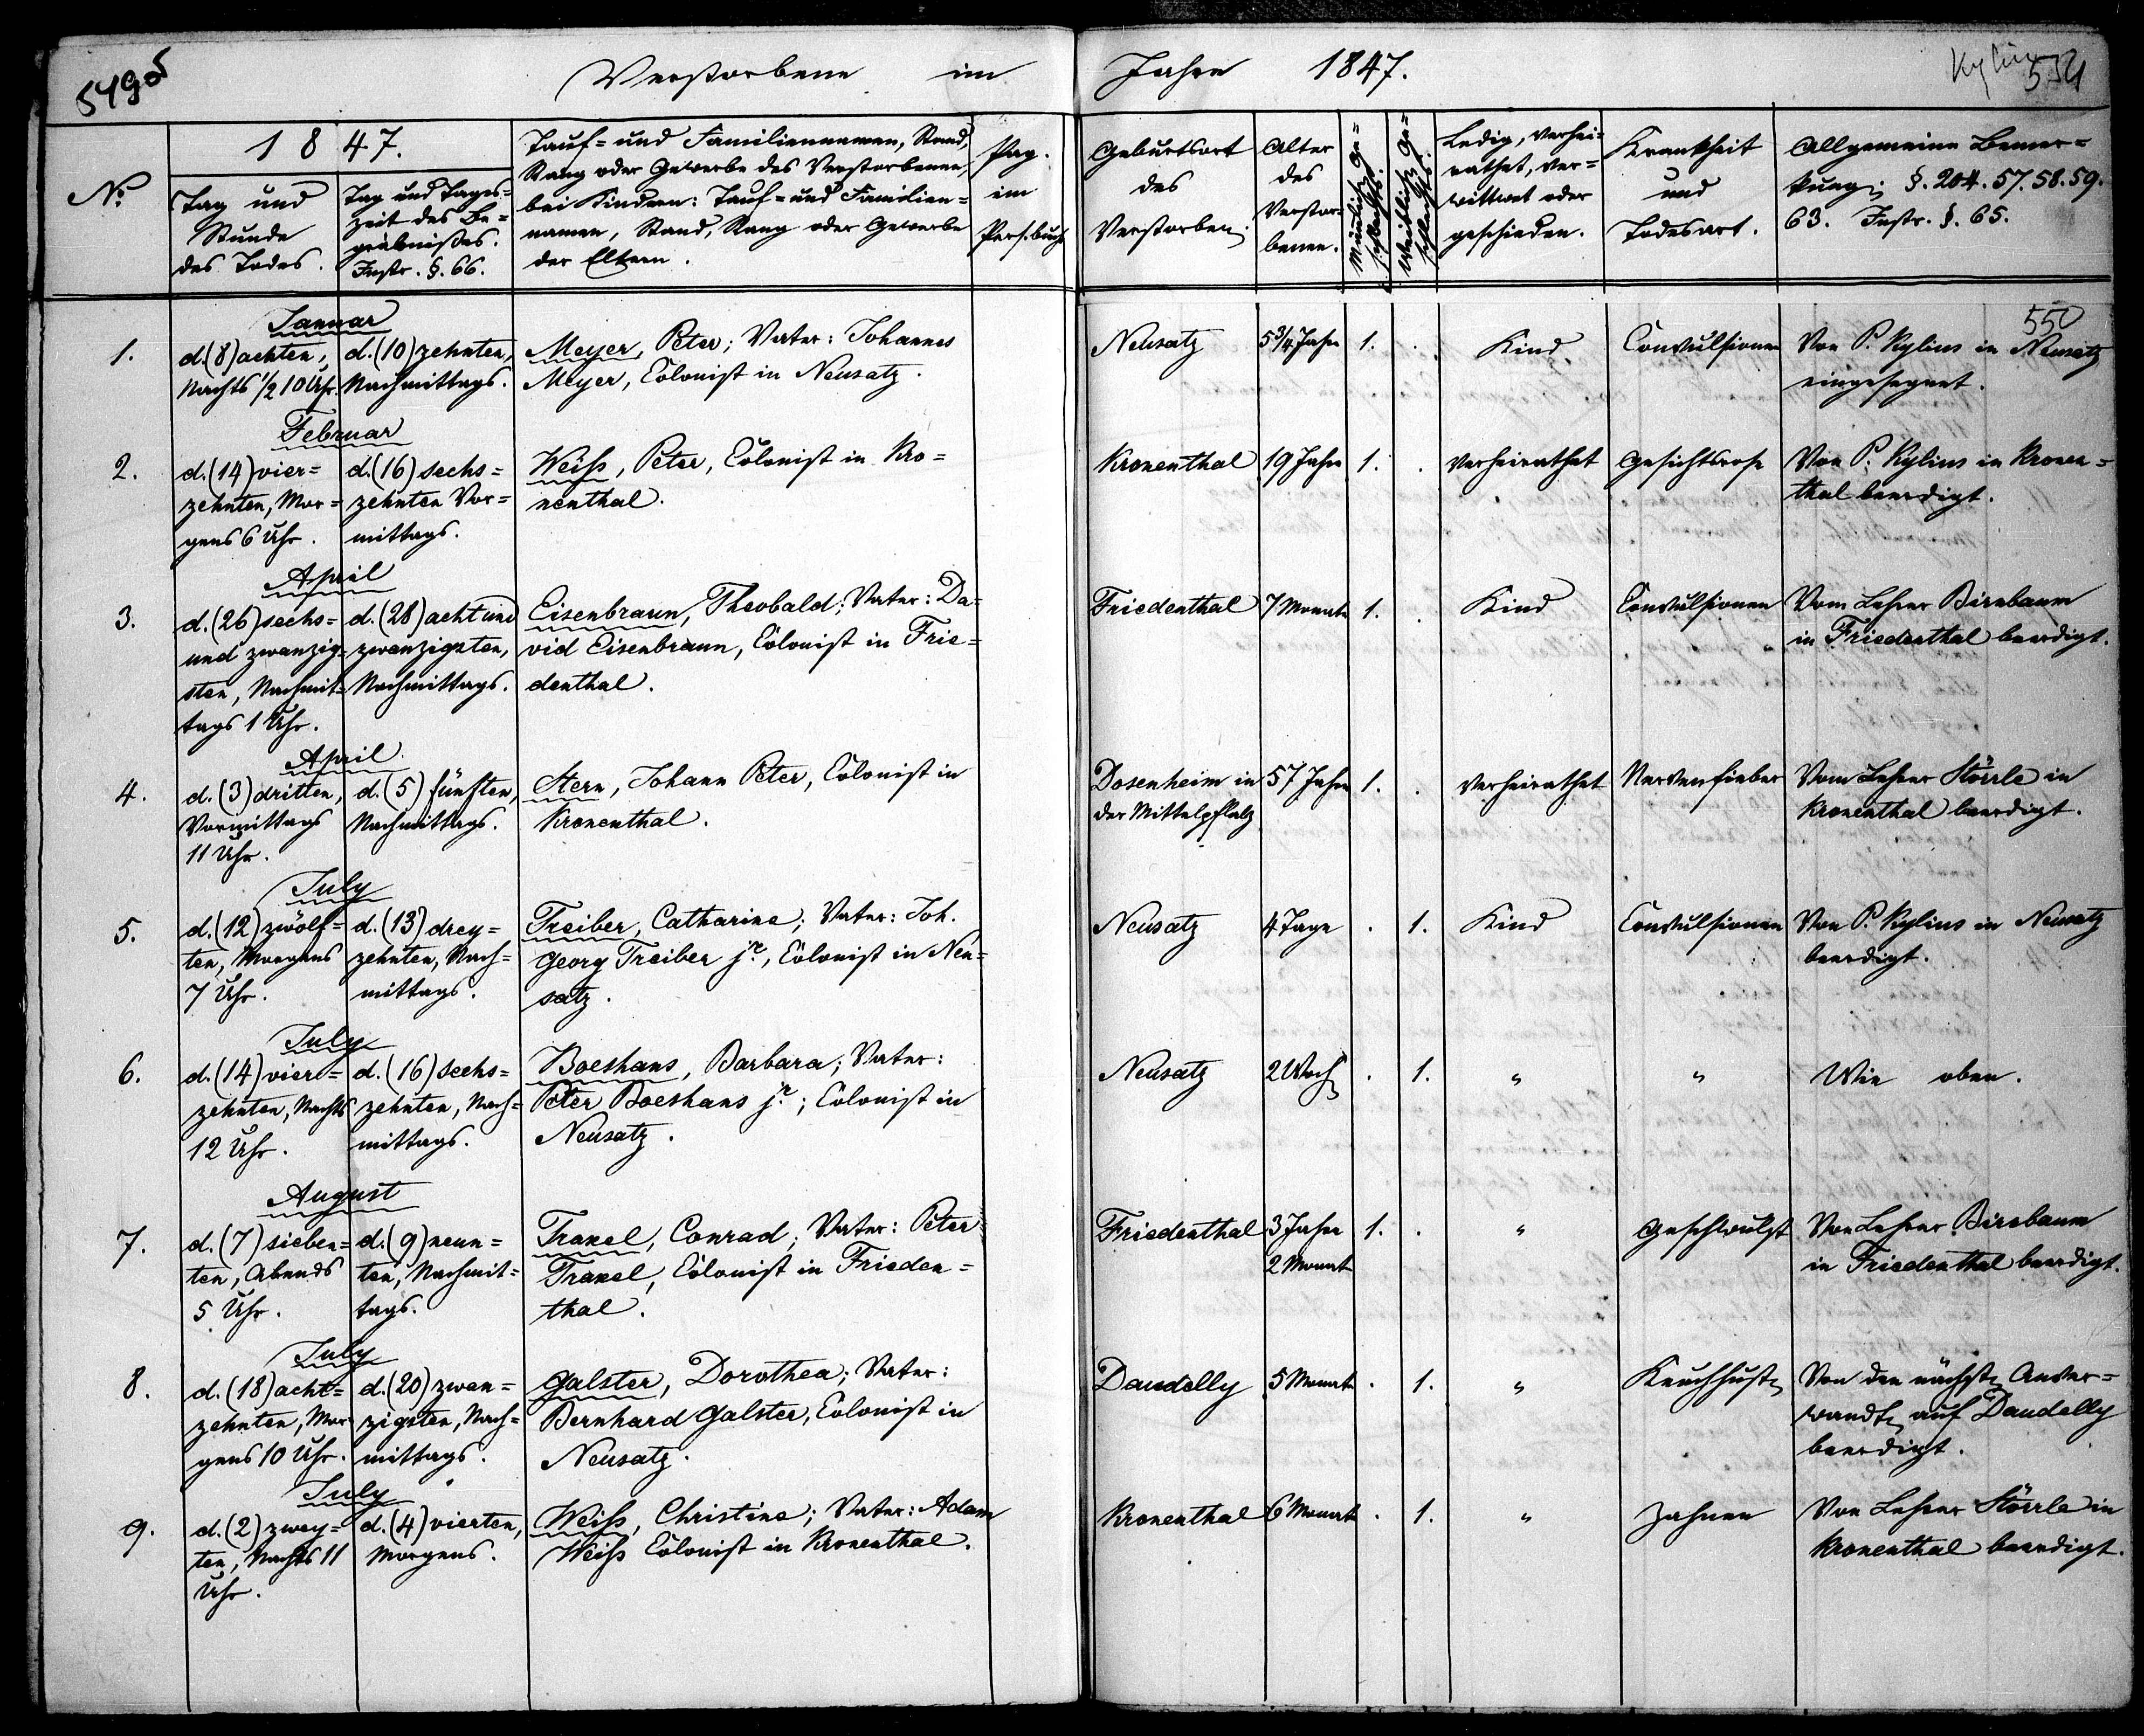 Verstorbene im Jahre 1847.
549
554
No.
1847.
Tag und
Stunde
des Todes.
Tag und Tages=
zeit des Be=
gräbnißes.
Instr. §. 66.
Tauf= und Familiennamen, Stand,
Rang oder Gewerbe des Verstorbenen,
bei Kindern: Tauf= und Familien=
namen, Stand, Rang oder Gewerbe
der Eltern.
Pag.
im
Pers.buch
Geburtsort
des
Verstorben.
Alter
des
Verstor=
benen.
Männlich Ge=
schlechts.
Weiblich Ge=
schlechts.
Ledig, verhei=
rathet, ver=
wittwet oder
geschieden.
Krankheit
und
Todesart.
Allgemeine Bemer=
kung; §. 204. 57. 58. 59.
63. Instr. §. 65.
550
Januar
1.
d. (8) achten,
Nachts 1/2 10 Uhr.
d. (10) zehnten,
Nachmittags.
Meyer, Peter; Vater: Johannes
Meyer, Colonist in Neusatz.
Neusatz
5 3/4 Jahr
1.
.
Kind
Convulsionen
Von P. Kylius in Neusatz
eingesegnet.
Februar
2.
d. (14) vier=
zehnten, Mor=
gens 6 Uhr.
d. (16) sechs=
zehnten Vor=
mittags.
Weiss, Peter, Colonist in Kro=
nenthal.
Kronenthal
19 Jahr
1.
.
verheirathet
Gesichtsrose
Von P. Kylius in Kronen=
thal beerdigt.
April
3.
d. (26) sechs=
und zwanzig=
sten, Nachmit=
tags 1 Uhr.
d. (28) acht und
zwanzigsten,
Nachmittags.
Eisenbraun, Theobald; Vater: Da=
vid Eisenbraun, Colonist in Frie=
denthal.
Friedenthal
7 Monate
1.
.
Kind
Convulsionen
Vom Lehrer Birnbaum
in Friedenthal beerdigt.
April
4.
d. (3) dritten,
Vormittags
11 Uhr.
d. (5) fünften,
Nachmittags.
Stern, Johann Peter, Colonist in
Kronenthal.
Dosenheim in
der Mittelpfalz
57 Jahr
1.
.
verheirathet
Nervenfieber
Vom Lehrer Störrle in
Kronenthal beerdigt.
July
5.
d. (12) zwölf=
ten, Morgens
7 Uhr.
d. (13) drey=
zehnten, Nach=
mittags.
Treiber, Catharine; Vater: Joh.
Georg Treiber jr., Colonist in Neu=
satz.
Neusatz
4 Tage
.
1.
Kind
Convulsionen
Von P. Kylius in Neusatz
beerdigt.
July
6.
d. (14) vier=
zehnten, Nachts
12 Uhr.
d. (16) sechs=
zehnten, Nach=
mittags.
Boeshans, Barbara; Vater:
Peter Boeshans jr.; Colonist in
Neusatz.
Neusatz
2 Woch
.
1.
"
"
Wie oben.
August
7.
d. (7) sieben=
ten, Abends
5 Uhr.
d. (9) neun=
ten, Nachmit=
tags.
Traxel, Conrad; Vater: Peter
Traxel, Colonist in Frieden=
thal.
Friedenthal
3 Jahr
2 Monat
1.
.
"
Geschwulst
Von Lehrer Birnbaum
in Friedenthal beerdigt.
July
8.
d. (18) acht=
zehnten, Mor
gens 10 Uhr.
d. (20) zwan=
zigsten, Nach=
mittags.
Galster, Dorothea; Vater:
Bernhard Galster, Colonist in
Neusatz.
Daudelly
5 Monat
.
1.
"
Keuchhusten
Von den nächsten Anver=
wandten auf Daudelly
beerdigt.
July
9.
d. (2) zwey=
ten, Nachts 11
Uhr.
d. (4) vierten,
Morgens.
Weiss, Christine; Vater: Adam
Weiss Colonist in Kronenthal.
Kronenthal
6 Monate
.
1.
"
Zahnen
Von Lehrer Störrle in
Kronenthal beerdigt.